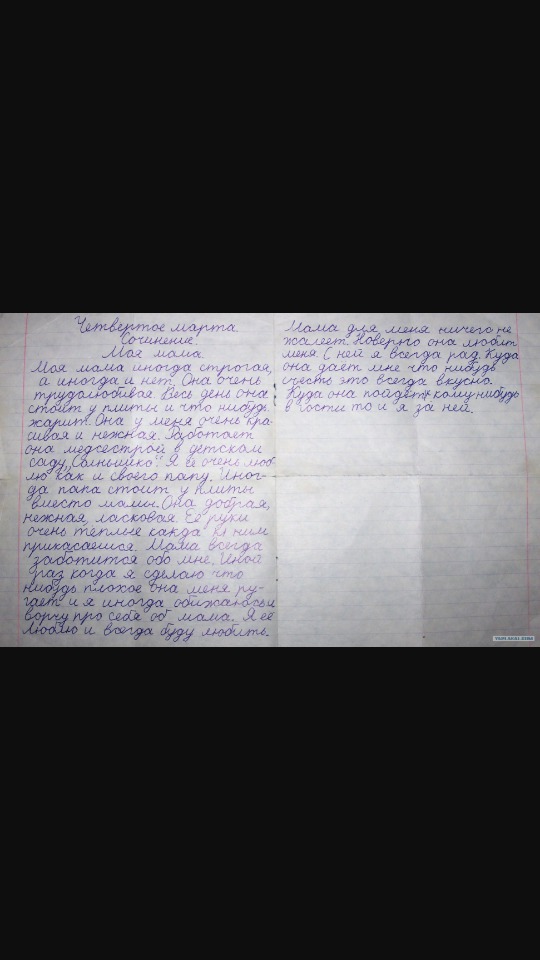 Четвертое марта.
Сочинение.
Моя мама.
Моя мама иногда строгая,
а иногда и нет. Она очень
трудолюбивая. Весь день она
стоит у плиты и что нибудь
жарит. Она у меня очень кра-
сивая и нежная. Работает
она медсестрой в детском
саду „Солнышко“. Я её очень люб-
лю как и своего папу. Иног-
да папа стоит у плиты
вместо мамы. Она добрая,
нежная, ласковая. Её руки
очень тёплые к ним
прикасаешся. Мама всегда
заботится обо мне. Иной
раз когда я сделаю что
нибудь плохое она меня ру-
гает и я иногда обижаюсь и
ворчу про себя об мама. Я её
люблю и всегда буду любить.
Мама для меня ничего не
жалеет. Новерно она любит
меня. С ней я всегда рад. Куда
она даёт мне что нибудь
съесть это всегда вкусно.
Куда она пойдёт к кому нибудь
в гости то и я за ней.